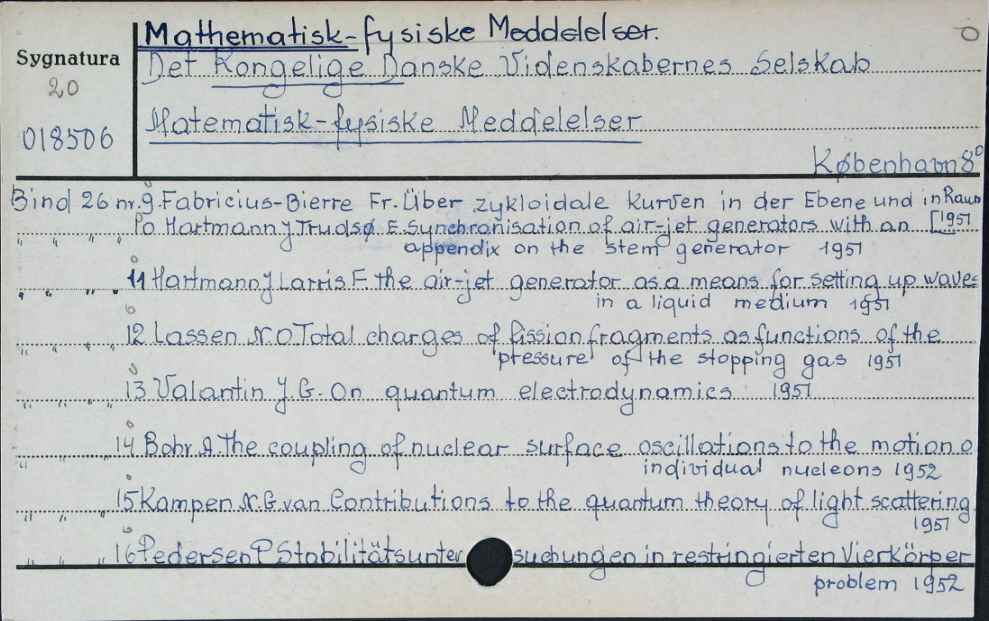 Mathematisk-fysiske Meddelelser.
O
Sygnatura
Det Kongelige Danske Videnskabernes Selskab
20
018506
Matematisk-fysiske Meddelelser
København 8°
Bind 26 nr. 9. Fabricius-Bierre Fr. Über zykloidale Kurven in der Ebene und in Raum
" " " " 10 Hartmann J Trudsø. E. Synchronisation of air-jet generators with an [1951
appendix on the stem generator 1951
" " " " 11 Hartmann J Larris F. the air-jet generator as a means for setting up waves
in a liquid medium 1951
" " " " 12 Lassen N.O Total charges of fission fragments as functions of the
pressure of the stopping gas 1951
" " " " 13 Valantin J.G. On quantum electrodynamics 1951
" " " " 14 Bohr A. The coupling of nuclear surface oscillations to the motion o
individual nucleons 1952
" " " 15 Kampen N.G van Contributions to the quantum theory of light scattering
1951
" " " 16 Pedersen P Stabilitätsuntersuchungen in restringierten Vierkörper
problem 1952